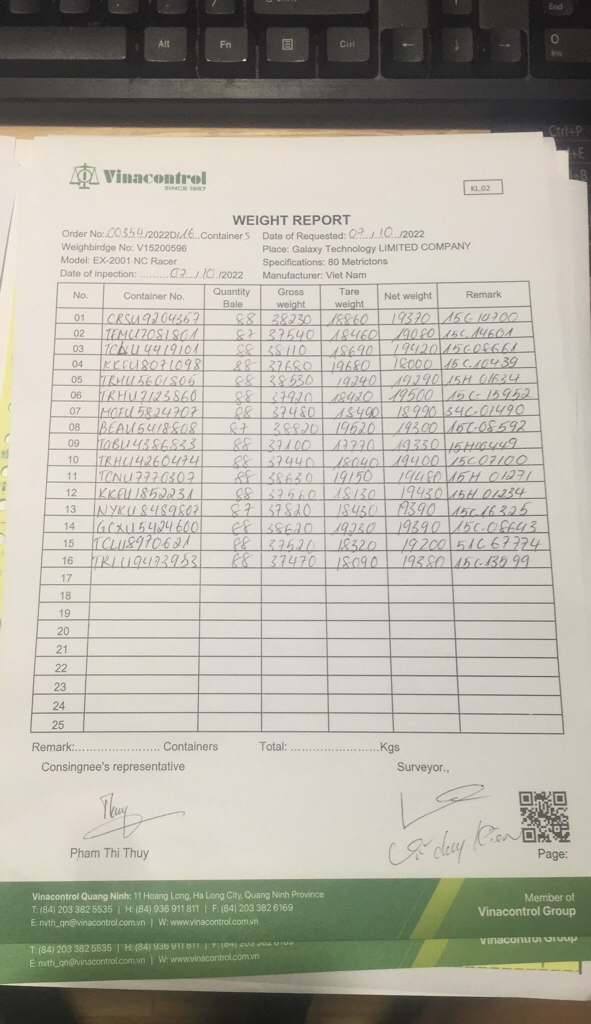 Alt
Fn
Ctrl
End
0
Ins
Ctrl+P
+E
+B
Vinacontrol
SINCE 1957
KL.02
WEIGHT REPORT
Order No: 00354/2022D/16 Containers Date of Requested: 07/10/2022
Weighbirdge No: V15200596 Place: Galaxy Technology LIMITED COMPANY
Model: EX-2001 NC Racer Specifications: 80 Metrictons
Date of inpection: ......... 07/10/2022 Manufacturer: Viet Nam
No. Container No. Quantity Bale Gross weight Tare weight Net weight Remark
01 CRSU9204357 88 38230 18860 19370 15C 14700
02 TEMU7081801 87 37540 18460 19080 15C.14601
03 4419101 88 38110 18690 19420 15C08661
04 KKFU8071098 88 37680 19680 18000 15C.10439
05 TRHU5601805 88 38530 19240 19290 15H 01634
06 TRHU7123860 88 37920 18420 19500 15C-15952
07 MOFU5824707 88 37480 18490 18990 34C-01490
08 BEAU5418808 87 38820 19520 19300 15C-08592
09 TGBU4386833 88 37100 17770 19330
10 TRHU4260474 88 37440 18040 19400 15C07100
11 TCNU7770307 88 38630 19150 19480 15H 01271
12 KKFU1852231 88 37560 18130 19430 15H 01234
13 NYKU8489807 87 37820 18430 19390 15C16325
14 GCXU5424600 88 38620 19230 19390 15C.08643
15 TCLU8970621 88 37520 18320 19200 51C 67774
16 TRLU9473953 88 37470 18090 19380 15C.13599
17
18
19
20
21
22
23
24
25
Remark:...................... Containers Total: .......................Kgs
Consingnee's representative Surveyor.,
Thuy
Pham Thi Thuy
Page:
Vinacontrol Quang Ninh: 11 Hoang Long, Ha Long City, Quang Ninh Province
T: (84) 203 382 5535 | H: (84) 936 911 811 | F: (84) 203 382 6169
E: nvth_qn@vinacontrol.com.vn | W: www.vinacontrol.com.vn
Member of
Vinacontrol Group
Vinacontrol Group
T: (84) 203 382 5535 | H: (84) 936 911 811
E: nvth_qn@vinacontrol.com.vn | W: www.vinacontrol.com.vn